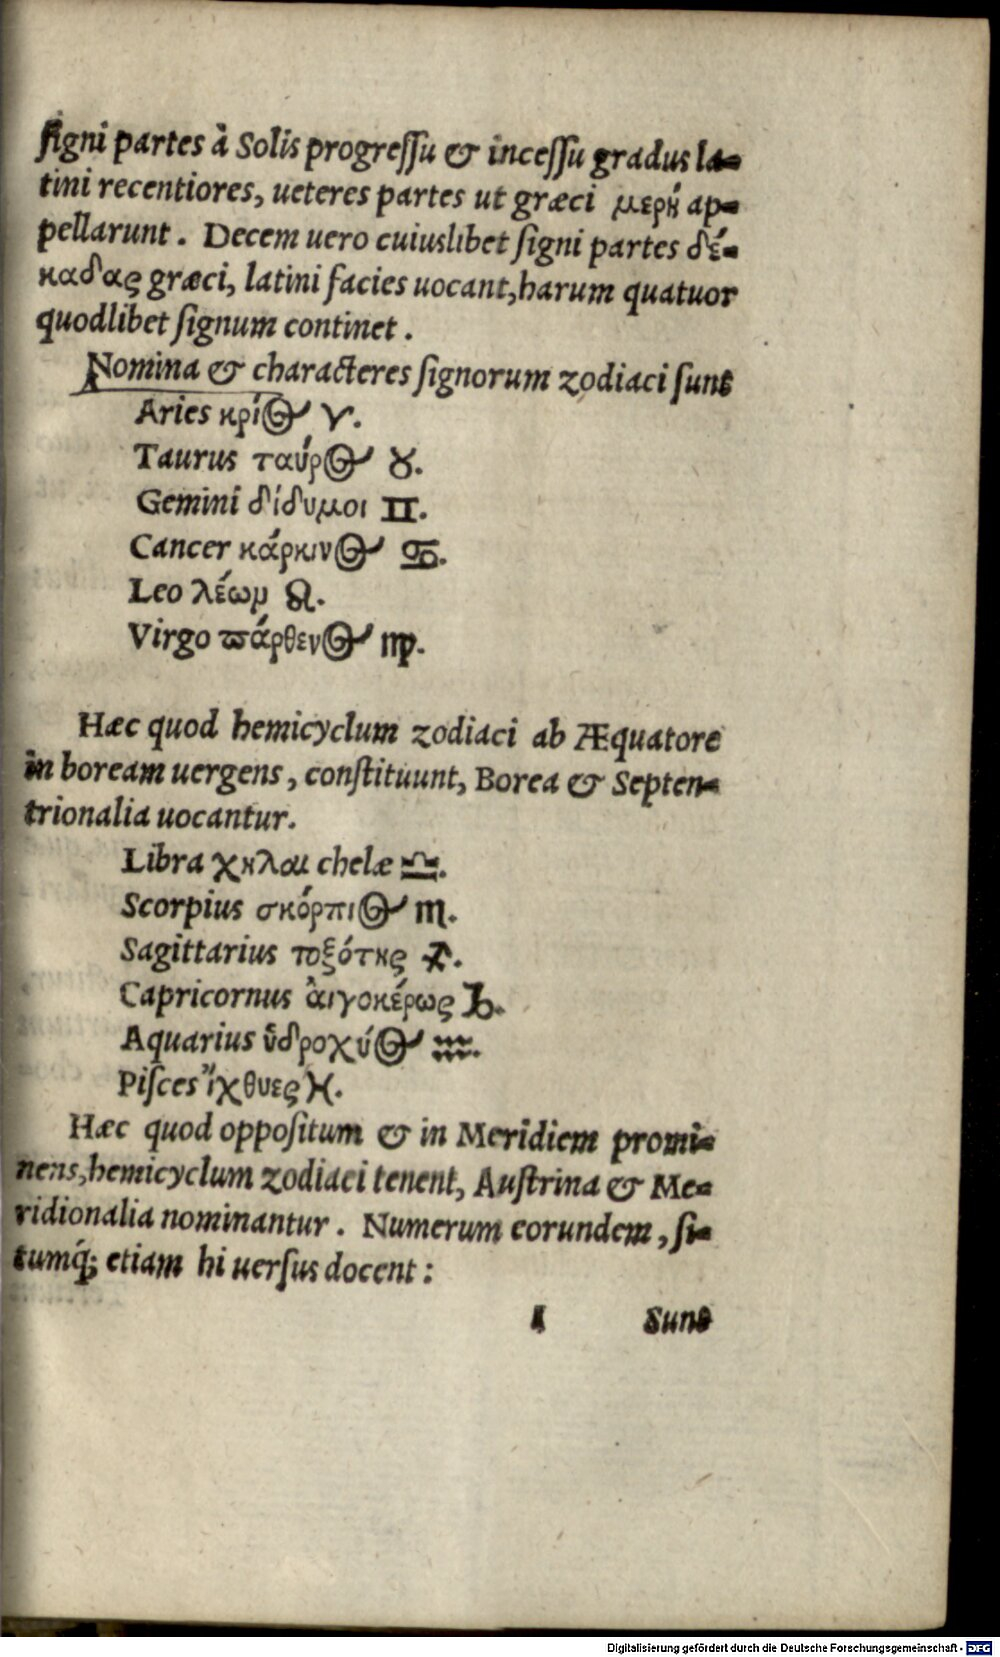 ſigni partes à Solis progreſſu & inceſſu gradus la-
tini recentiores, ueteres partes ut græci μερή ap-
pellarunt. Decem uero cuiuslibet ſigni partes δέ-
καδας græci, latini facies uocant, harum quatuor
quodlibet ſignum continet.
Nomina & characteres ſignorum zodiaci ſunt
Aries κρίος ♈.
Taurus ταύρος ♉.
Gemini δίδυμοι ♊.
Cancer κάρκινος ♋.
Leo λέων ♌.
Virgo πάρθενος ♍.
Hæc quod hemicyclum zodiaci ab Æquatore
in boream uergens, conſtituunt, Borea & Septen-
trionalia uocantur.
Libra χηλαι chelæ ♎.
Scorpius σκόρπιος ♏.
Sagittarius τοξότης ♐.
Capricornus ἀιγοκέρως ♑.
Aquarius ὑδροχύος ♒.
Piſces ἴχθυες ♓.
Hæc quod oppoſitum & in Meridiem promi-
nens, hemicyclum zodiaci tenent, Auſtrina & Me-
ridionalia nominantur. Numerum eorundem, ſi-
tumq́; etiam hi uerſus docent:
I Sunt
Digitalisierung gefördert durch die Deutsche Forschungsgemeinschaft - DFG